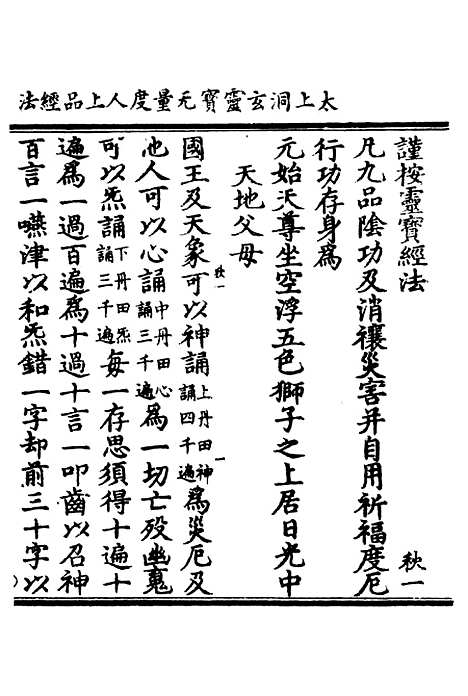 太上洞玄靈寳无量度人上品經法
謹按靈寳經法
秋一
凡九品陰功及消禳災害并自用祈福度厄
行功存身爲
元始天尊坐空浮五色獅子之上居日光中
天地父母
秋一
國王及天象可以神誦上丹田神一誦四千遍爲災厄及
他人可以心誦中丹田心誦三千遍爲一切亡殁幽䰟
可以炁誦下丹田炁誦三千遍每一存思須得十遍十
遍爲一過百遍爲十過十言一叩齒以召神
百言一嚥津以和炁錯一字却前三十字以